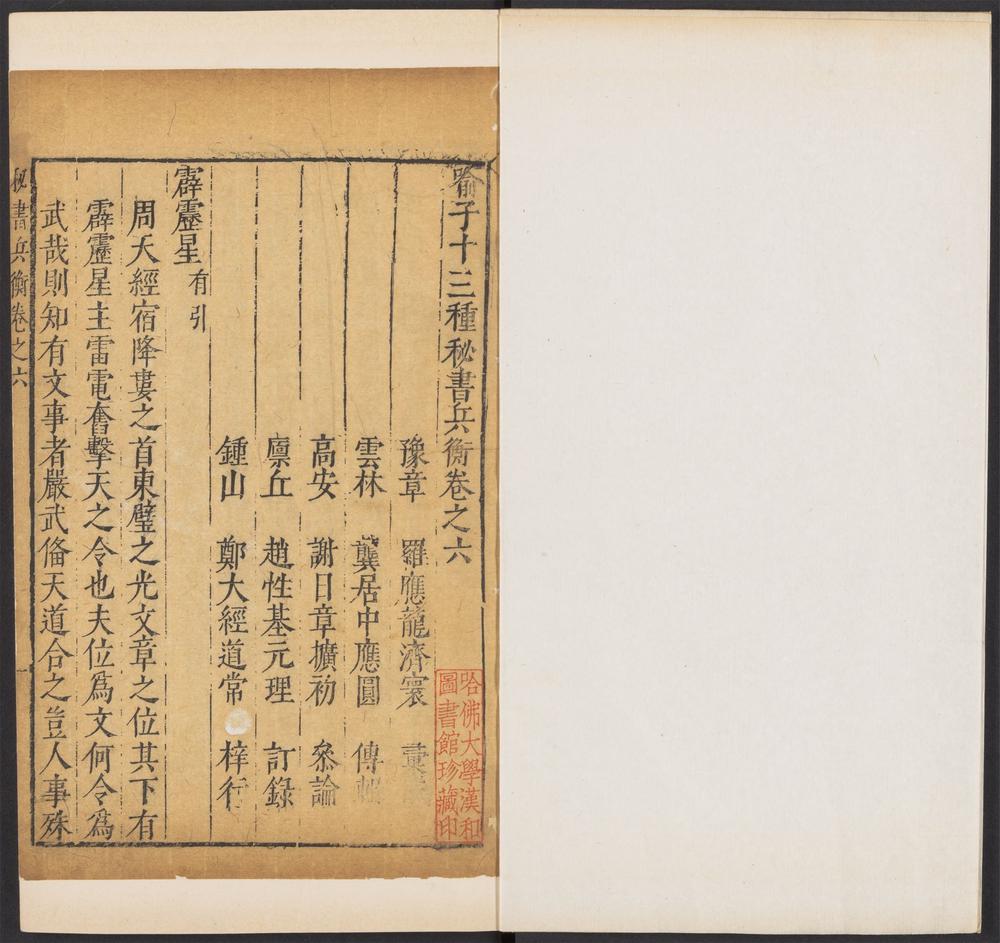 喻子十三種秘書兵衡卷之六
豫章 羅應龍濟寰 彙
雲林 龔居中應圓 傳
高安 謝日章擴初 叅論
廩丘 趙性基元理 訂錄
鍾山 鄭大經道常 梓行
霹靂星有引
周天經宿降婁之首東璧之光文章之位其下有
霹靂星主雷電奮擊天之令也夫位爲文何令爲
武哉則知有文事者嚴武俻天道合之豈人事殊
秘書兵衡卷之六 一
哈佛大學漢和
圖書館珍藏印